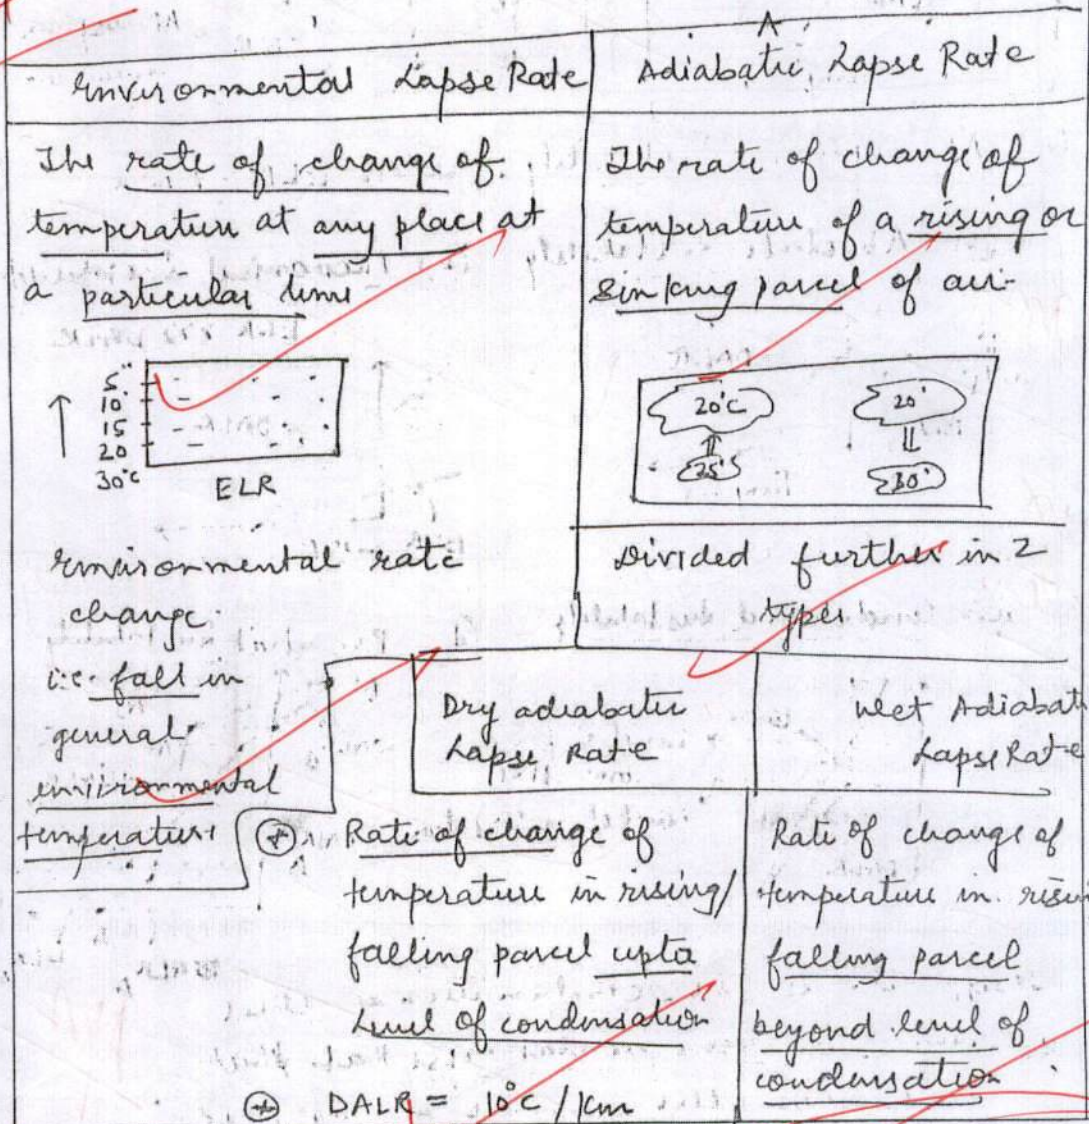 Environmental Lapse Rate
The rate of change of
temperature at any place at
a particular time
5°
10°
15
20
30°c
ELR
Environmental rate
change
i.e. fall in
general
environmental
temperature
Adiabatic Lapse Rate
The rate of change of
temperature of a rising or
sinking parcel of air.
20°C
20°
25°
30°
Divided further in 2
types
Dry adiabatic
Lapse Rate
Rate of change of
temperature in rising/
falling parcel upto
level of condensation
DALR = 10°c / km
Wet Adiabati
Lapse Rate
Rate of change of
temperature in risin
falling parcel
beyond level of
condensation